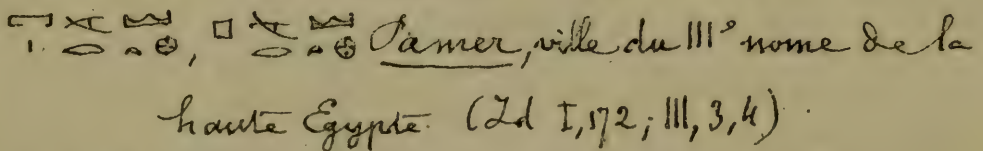 Pamer, ville du III° nome de la
haute Egypte (Id I, 172; III, 3, 4).